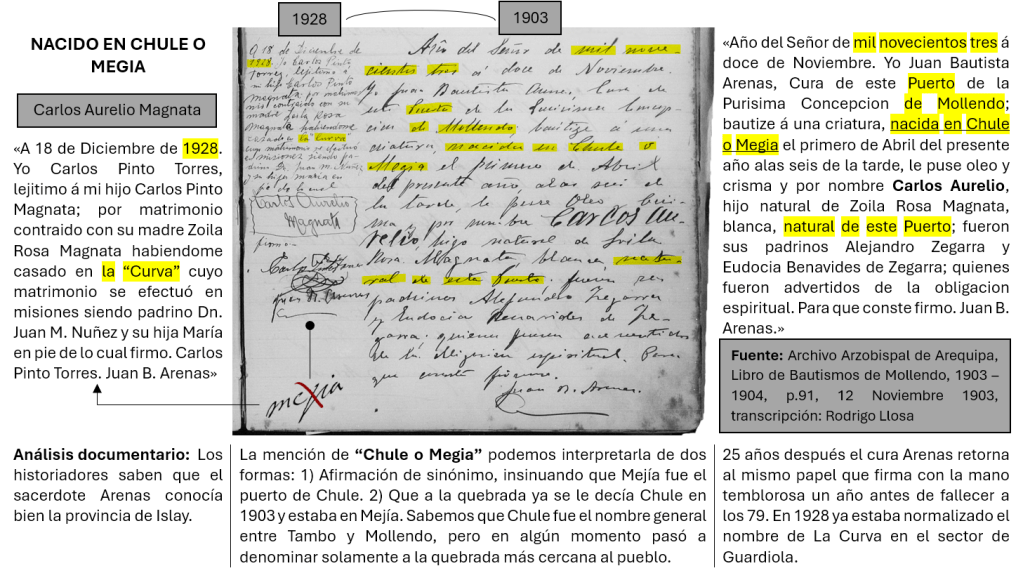 1928
1903
NACIDO EN CHULE O
MEGIA
Carlos Aurelio Magnata
«A 18 de Diciembre de 1928.
Yo Carlos Pinto Torres,
lejitimo á mi hijo Carlos Pinto
Magnata; por matrimonio
contraido con su madre Zoila
Rosa Magnata habiendome
casado en la “Curva” cuyo
matrimonio se efectuó en
misiones siendo padrino Dn.
Juan M. Nuñez y su hija María
en pie de lo cual firmo. Carlos
Pinto Torres. Juan B. Arenas»
A 18 de Diciembre de
1928. Yo Carlos Pinto
Torres, lejitimo á
mi hijo Carlos Pinto
Magnata; por matrimonio
contraido con su
madre Zoila Rosa
Magnata habiendome
casado en la "Curva"
cuyo matrimonio se efectuó
en misiones siendo pa-
drino Dn. Juan M. Nuñez
y su hija María en
pie de lo cual
firmo.
Carlos Aurelio
Magnata
Carlos Pinto Torres
Juan B. Arenas
mejia
Año del Señor de mil nove-
cientos tres á doce de Noviembre.
Yo Juan Bautista Arenas, Cura de
este Puerto de la Purisima Concep-
cion de Mollendo; bautize á una
criatura, nacida en Chule o
Megia el primero de Abril
del presente año, alas seis de
la tarde, le puse Oleo y Cris-
ma, y por nombre Carlos Au-
relio, hijo natural de Zoila
Rosa Magnata, blanca, natu-
ral de este Puerto; fueron sus
padrinos Alejandro Zegarra
y Eudocia Benavides de Ze-
garra; quienes fueron advertidos
de la obligacion espiritual. Para
que conste firmo.
Juan B. Arenas.
«Año del Señor de mil novecientos tres á
doce de Noviembre. Yo Juan Bautista
Arenas, Cura de este Puerto de la
Purisima Concepcion de Mollendo;
bautize á una criatura, nacida en Chule
o Megia el primero de Abril del presente
año alas seis de la tarde, le puse oleo y
crisma y por nombre Carlos Aurelio,
hijo natural de Zoila Rosa Magnata,
blanca, natural de este Puerto; fueron
sus padrinos Alejandro Zegarra y
Eudocia Benavides de Zegarra; quienes
fueron advertidos de la obligacion
espiritual. Para que conste firmo. Juan B.
Arenas.»
Fuente: Archivo Arzobispal de Arequipa,
Libro de Bautismos de Mollendo, 1903 –
1904, p.91, 12 Noviembre 1903,
transcripción: Rodrigo Llosa
Análisis documentario: Los
historiadores saben que el
sacerdote Arenas conocía
bien la provincia de Islay.
La mención de “Chule o Megia” podemos interpretarla de dos
formas: 1) Afirmación de sinónimo, insinuando que Mejía fue el
puerto de Chule. 2) Que a la quebrada ya se le decía Chule en
1903 y estaba en Mejía. Sabemos que Chule fue el nombre general
entre Tambo y Mollendo, pero en algún momento pasó a
denominar solamente a la quebrada más cercana al pueblo.
25 años después el cura Arenas retorna
al mismo papel que firma con la mano
temblorosa un año antes de fallecer a
los 79. En 1928 ya estaba normalizado el
nombre de La Curva en el sector de
Guardiola.